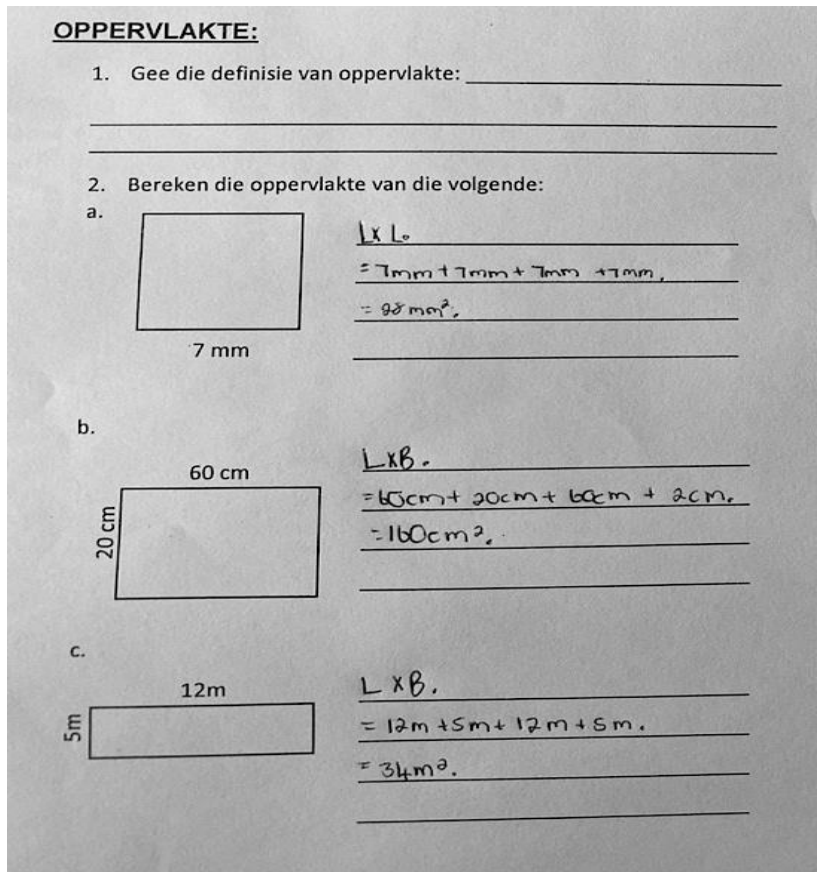 OPPERVLAKTE:
1. Gee die definisie van oppervlakte:
2. Bereken die oppervlakte van die volgende:
a.
L x L.
= 7mm + 7mm + 7mm + 7mm.
= 28 mm².
7 mm
b.
60 cm
L x B.
20 cm
= 60cm + 20cm + 60cm + 2cm.
= 160cm².
c.
12m
L x B.
5m
= 12m + 5m + 12m + 5m.
= 34m².